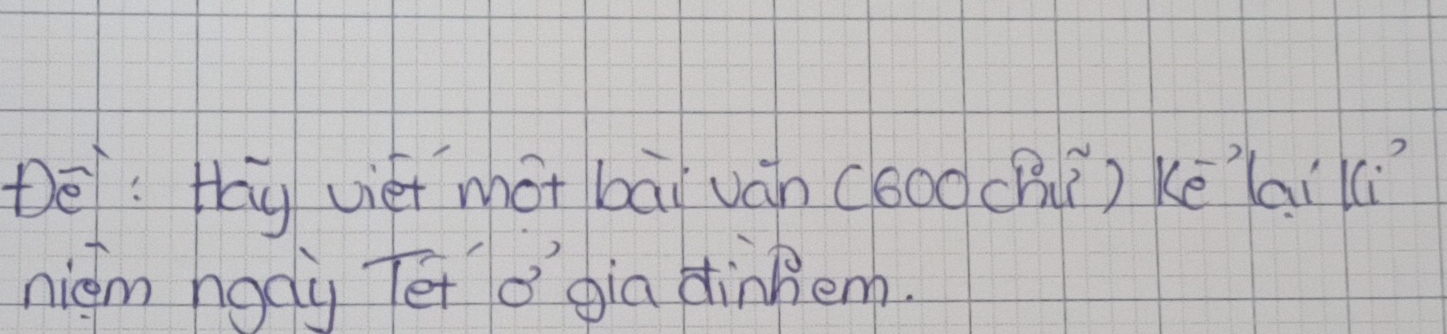 Đề: Hãy viết một bài văn (600 chữ) kể lại kỉ
niệm ngày Tết ở gia đình em.